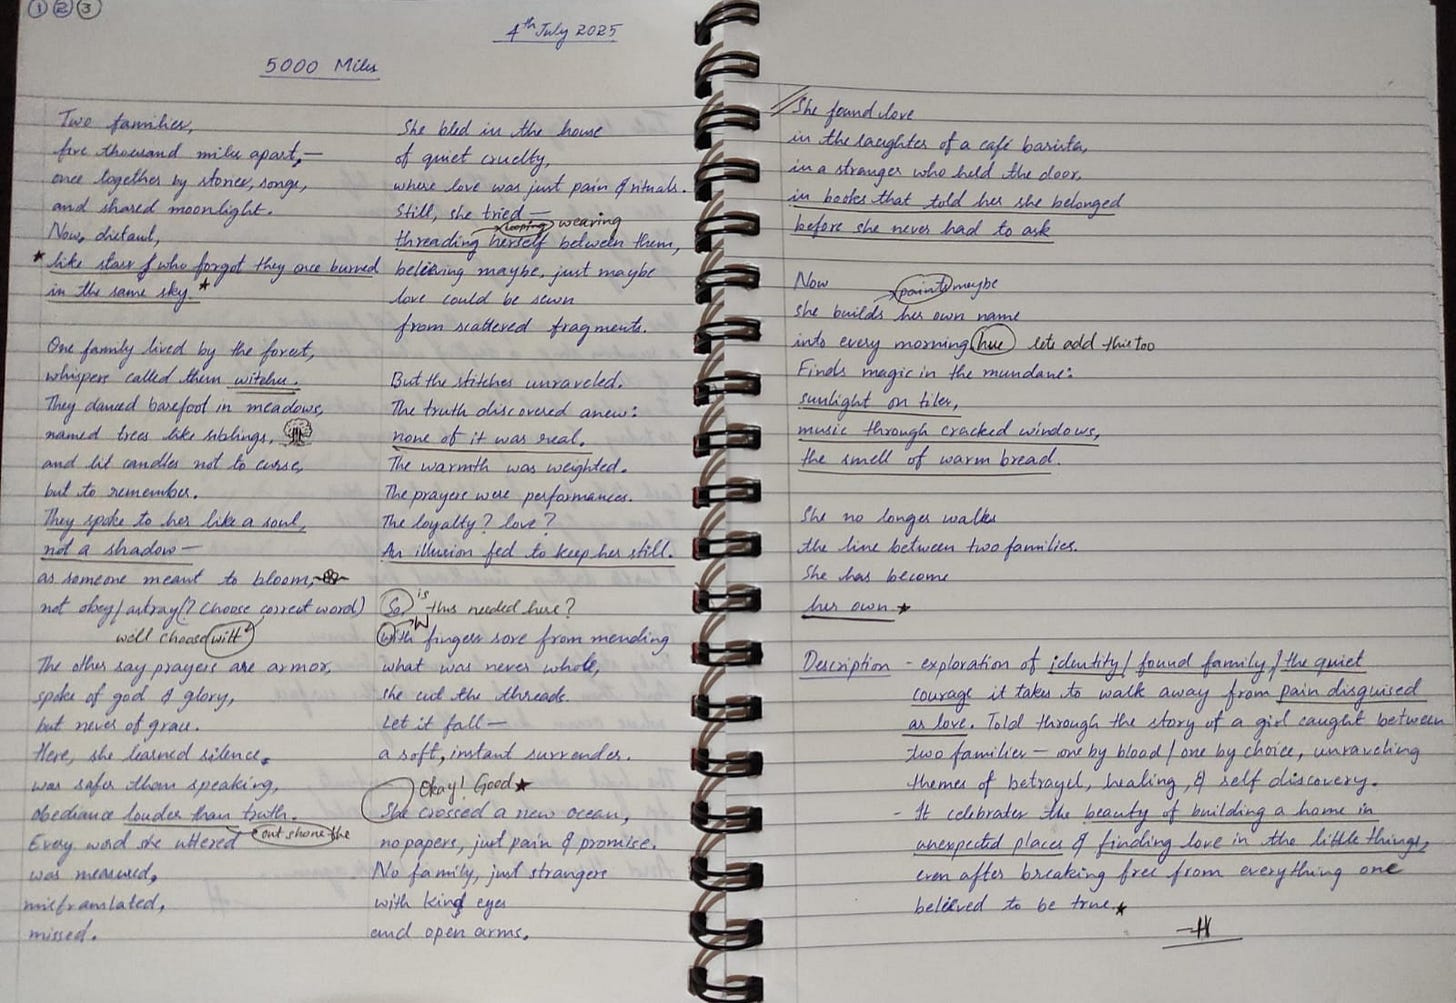 1 2 3
4th July 2025
5000 Miles
Two families,
five thousand miles apart,—
once together by stories, songs,
and shared moonlight.
Now, distant,
* like stars who forgot they once burned
in the same sky. *
One family lived by the forest,
whispers called them witches.
They danced barefoot in meadows,
named trees like siblings,
and lit candles not to curse,
but to remember.
They spoke to her like a soul,
not a shadow—
as someone meant to bloom,
not obey/astray(? choose correct word)
we'll choose wilt
The other say prayers are armor,
spoke of god & glory,
but never of grace.
Here, she learned silence,
was safer than speaking,
obedience louder than truth.
out shone the
Every word she uttered
was measured,
mistranslated,
missed.
She bled in the house
of quiet cruelty,
where love was just pain & rituals.
Still, she tried—
looping wearing
threading herself between them,
believing maybe, just maybe
love could be sewn
from scattered fragments.
But the stitches unraveled.
The truth discovered anew:
none of it was real.
The warmth was weighted.
The prayers were performances.
The loyalty? love?
An illusion fed to keep her still.
So, is this needed here?
W
with fingers sore from mending
what was never whole,
she cut the threads.
Let it fall—
a soft, instant surrender.
Okay! Good *
She crossed a new ocean,
no papers, just pain & promise.
No family, just strangers
with kind eyes
and open arms.
// She found love
in the laughter of a café barista,
in a stranger who held the door,
in books that told her she belonged
before she never had to ask
Now
paints maybe
she builds her own name
into every morning hue lets add this too
Finds magic in the mundane:
sunlight on tiles,
music through cracked windows,
the smell of warm bread.
She no longer walks
the line between two families.
She has become
her own *
Description - exploration of identity/ found family/ the quiet
courage it takes to walk away from pain disguised
as love. Told through the story of a girl caught between
two families — one by blood / one by choice, unraveling
themes of betrayel, healing, & self discovery.
- It celebrates the beauty of building a home in
unexpected places & finding love in the little things,
even after breaking free from everything one
believed to be true *
-H